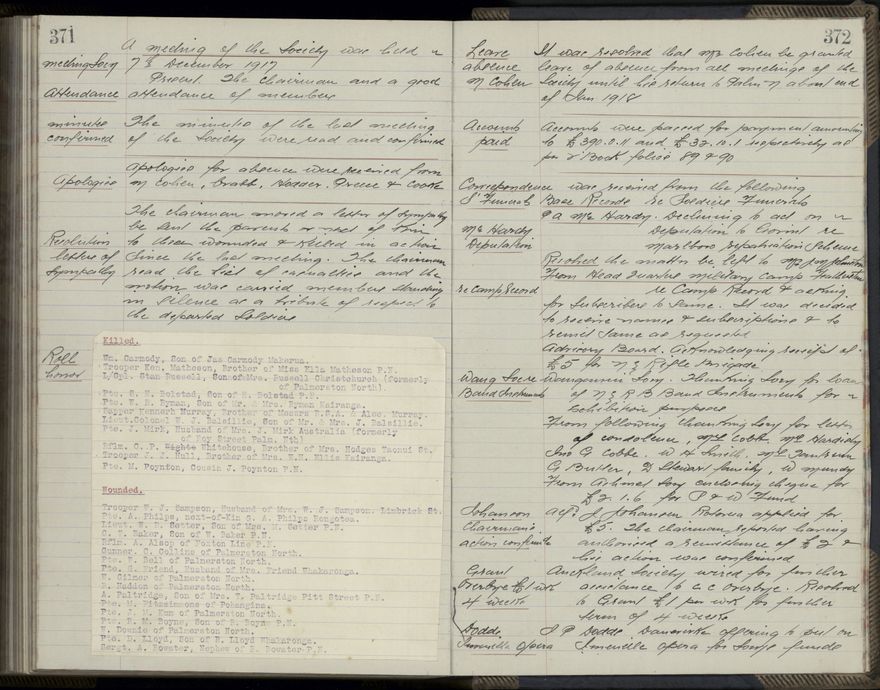 371
A meeting of the Society was held on
meeting Socy 7th December 1917
Present. The Chairman and a good
Attendance attendance of members
minutes The minutes of the last meeting
confirmed of the Society were read and confirmed
Apologies for absence were received from
Apologies M Cohen, Crabb, Hodder, Preece & Cooke
The chairman moved a letter of sympathy
be sent the parents or next of kin
Resolution to those wounded & killed in action
letters of since the last meeting. The chairman
sympathy read the list of casualties and the
motion was carried members standing
in silence as a tribute of respect to
the departed Soldiers
Roll
honor
Killed.
Wm. Carmody, Son of Jas Carmody Makerua.
Trooper Ken. Matheson, Brother of Miss Ella Matheson P.N.
L/Cpl. Stan Russell, Son of Mrs. Russell Christchurch (formerly
of Palmerston North).
Pte. S. H. Bolstad, Son of H. Bolstad P.N.
Pte. W. F. Ryman, Son of Mr. & Mrs. Ryman Kairanga.
Sapper Kenneth Murray, Brother of Messrs R.S.A. & Alec. Murray.
Lieut.Colonel F. J. Dalzellie, Son of Mr. & Mrs. J. Dalzellie.
Pte. J. Mirk, Husband of Mrs. J. Mirk Australia (formerly
of Roy Street Palm. Nth)
Rflm. C. P. Whitehouse, Brother of Mrs. Hodges Taonui St.
Trooper J. J. Hull, Brother of Mrs. E.H. Ellis Kairanga.
Pte. M. Poynton, Cousin J. Poynton P.N.
Wounded.
Trooper W. J. Sampson, Husband of Mrs. W. J. Sampson. Limbrick St.
Pte. A. Philps, next-of-Kin G. A. Philps Rongotea.
Lieut. W. H. Setter, Son of Mrs. M. Setter P.N.
C. E. Baker, Son of W. Baker P.N.
Rflm. A. Alsop of Foxton Line P.N.
Gunner. C. Collins of Palmerston North.
Pte. W. Bell of Palmerston North.
Pte. H. Friend, Husband of Mrs. Friend Whakaronga.
W. Gilmor of Palmerston North.
R. Haddon of Palmerston North.
A. Paltridge, Son of Mrs. T. Paltridge Pitt Street P.N.
Pte. M. Fitzsimmons of Pohangina.
Pte. F. M. Kum of Palmerston North.
Pte. R. M. Boyne, Son of R. Boyne P.N.
W. Downie of Palmerston North.
Pte. D. Lloyd, Son of W. Lloyd Whakaronga.
Sergt. A. Bowater, Nephew of R. Bowater P.N.
372
Leave It was resolved that Mr Cohen be granted
absence leave of absence from all meetings of the
M Cohen Society until his return to Palm. N about end
of Jan 1918
Accounts Accounts were passed for payment amounting
paid to £390.0.11 and £32.10.1 respectively as
per Book folios 89 & 90
Correspondence was received from the following
S' Funerals Base Records re Soldiers Funerals
Mr Hardy P A Mc Hardy. Declining to act on
Deputation Deputation to Govmt re
Marlboro repatriation Scheme
Resolved the matter be left to Mr Johnston
From Head Quarters military Camp Featherston
re Camp Record re Camp Record & asking
for Subscribers to Same. It was decided
to receive names & subscriptions & to
remit Same as requested
Advisory Board. Acknowledging receipt of
£5 for N Z Rifle Brigade
Wang Socre Wanganui Socy. Thanking Socy for loan
Band Instruments of N Z R B Band Instruments for
Exhibition purposes
From following thanking Socy for letters
of condolence, Mrs Cobbe, Mc Hardie
Jno G Cobbe. W H Smith, Mc
G Butler, D Stewart family, W Mundy
From Ashurst Socy enclosing cheque for
£2.1.6 for P & W Fund
Johanson J. Johansen Rotorua applied for
Chairman's £5. The Chairman reported having
action confirmed authorised a remittance of £2 &
his action was confirmed
Grant Auckland Society wired for further
Overbye £1 wk assistance to C C Overbye. Resolved
4 weeks to Grant £1 per wk for further
term of 4 weeks
Dodds J P Dodds Dannevirke offering to put on
Juvenile Opera Juvenile opera for Socys funds